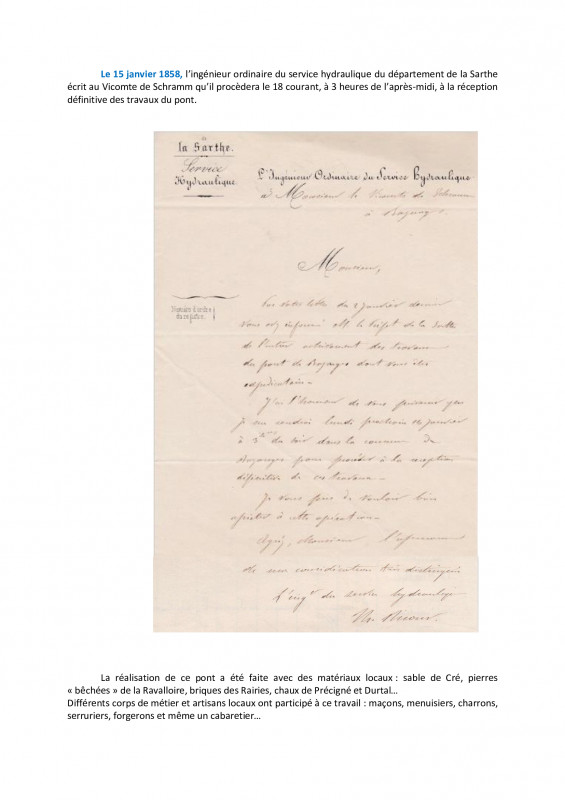 Le 15 janvier 1858, l'ingénieur ordinaire du service hydraulique du département de la Sarthe
écrit au Vicomte de Schramm qu'il procèdera le 18 courant, à 3 heures de l'après-midi, à la réception
définitive des travaux du pont.
la Sarthe.
Service
Hydraulique
L'Ingénieur Ordinaire du Service Hydraulique
à Monsieur le Vicomte de Schramm
à
Monsieur,
Par votre lettre du 2 janvier dernier
vous informé M. le Préfet de la Sarthe
de l'entier achèvement des travaux
du pont de dont vous êtes
adjudicataire.
Numéro d'ordre
du registre.
J'ai l'honneur de vous prévenir que
je me rendrai lundi prochain janvier
à 3 du soir dans la commune de
pour procéder à la réception
définitive de ces travaux.
Je vous prie de vouloir bien
assister à cette opération.
Agréez, Monsieur, l'assurance
de ma considération très distinguée
L'Ing.r du service hydraulique
La réalisation de ce pont a été faite avec des matériaux locaux : sable de Cré, pierres
« bêchées » de la Ravalloire, briques des Rairies, chaux de Précigné et Durtal…
Différents corps de métier et artisans locaux ont participé à ce travail : maçons, menuisiers, charrons,
serruriers, forgerons et même un cabaretier…